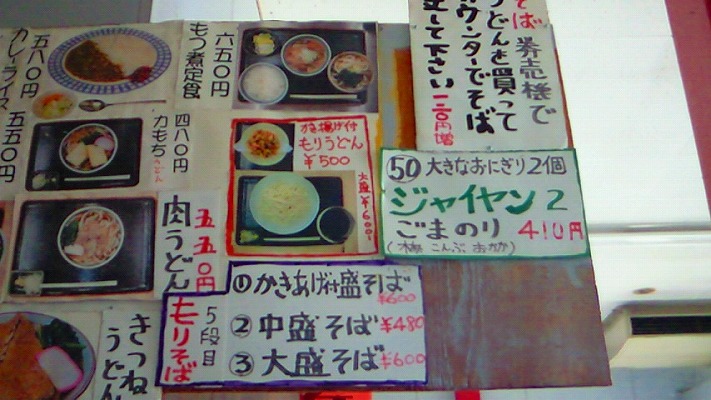 五八〇円
カレーライス
五五〇円
もつ煮定食
六五〇円
力もち
うどん
四八〇円
肉うどん
五五〇円
きつね
うどん
かき揚げ付
もりうどん
¥500
大盛¥600
そば
券売機で
うどんを買って
カウンターでそば
して下さい
50 大きなおにぎり2個
ジャイヤン2
ごまのり 410円
(梅 こんぶ おかか)
もりそば
5段目
①かきあげ付盛そば
¥600
②中盛そば¥480
③大盛そば¥600